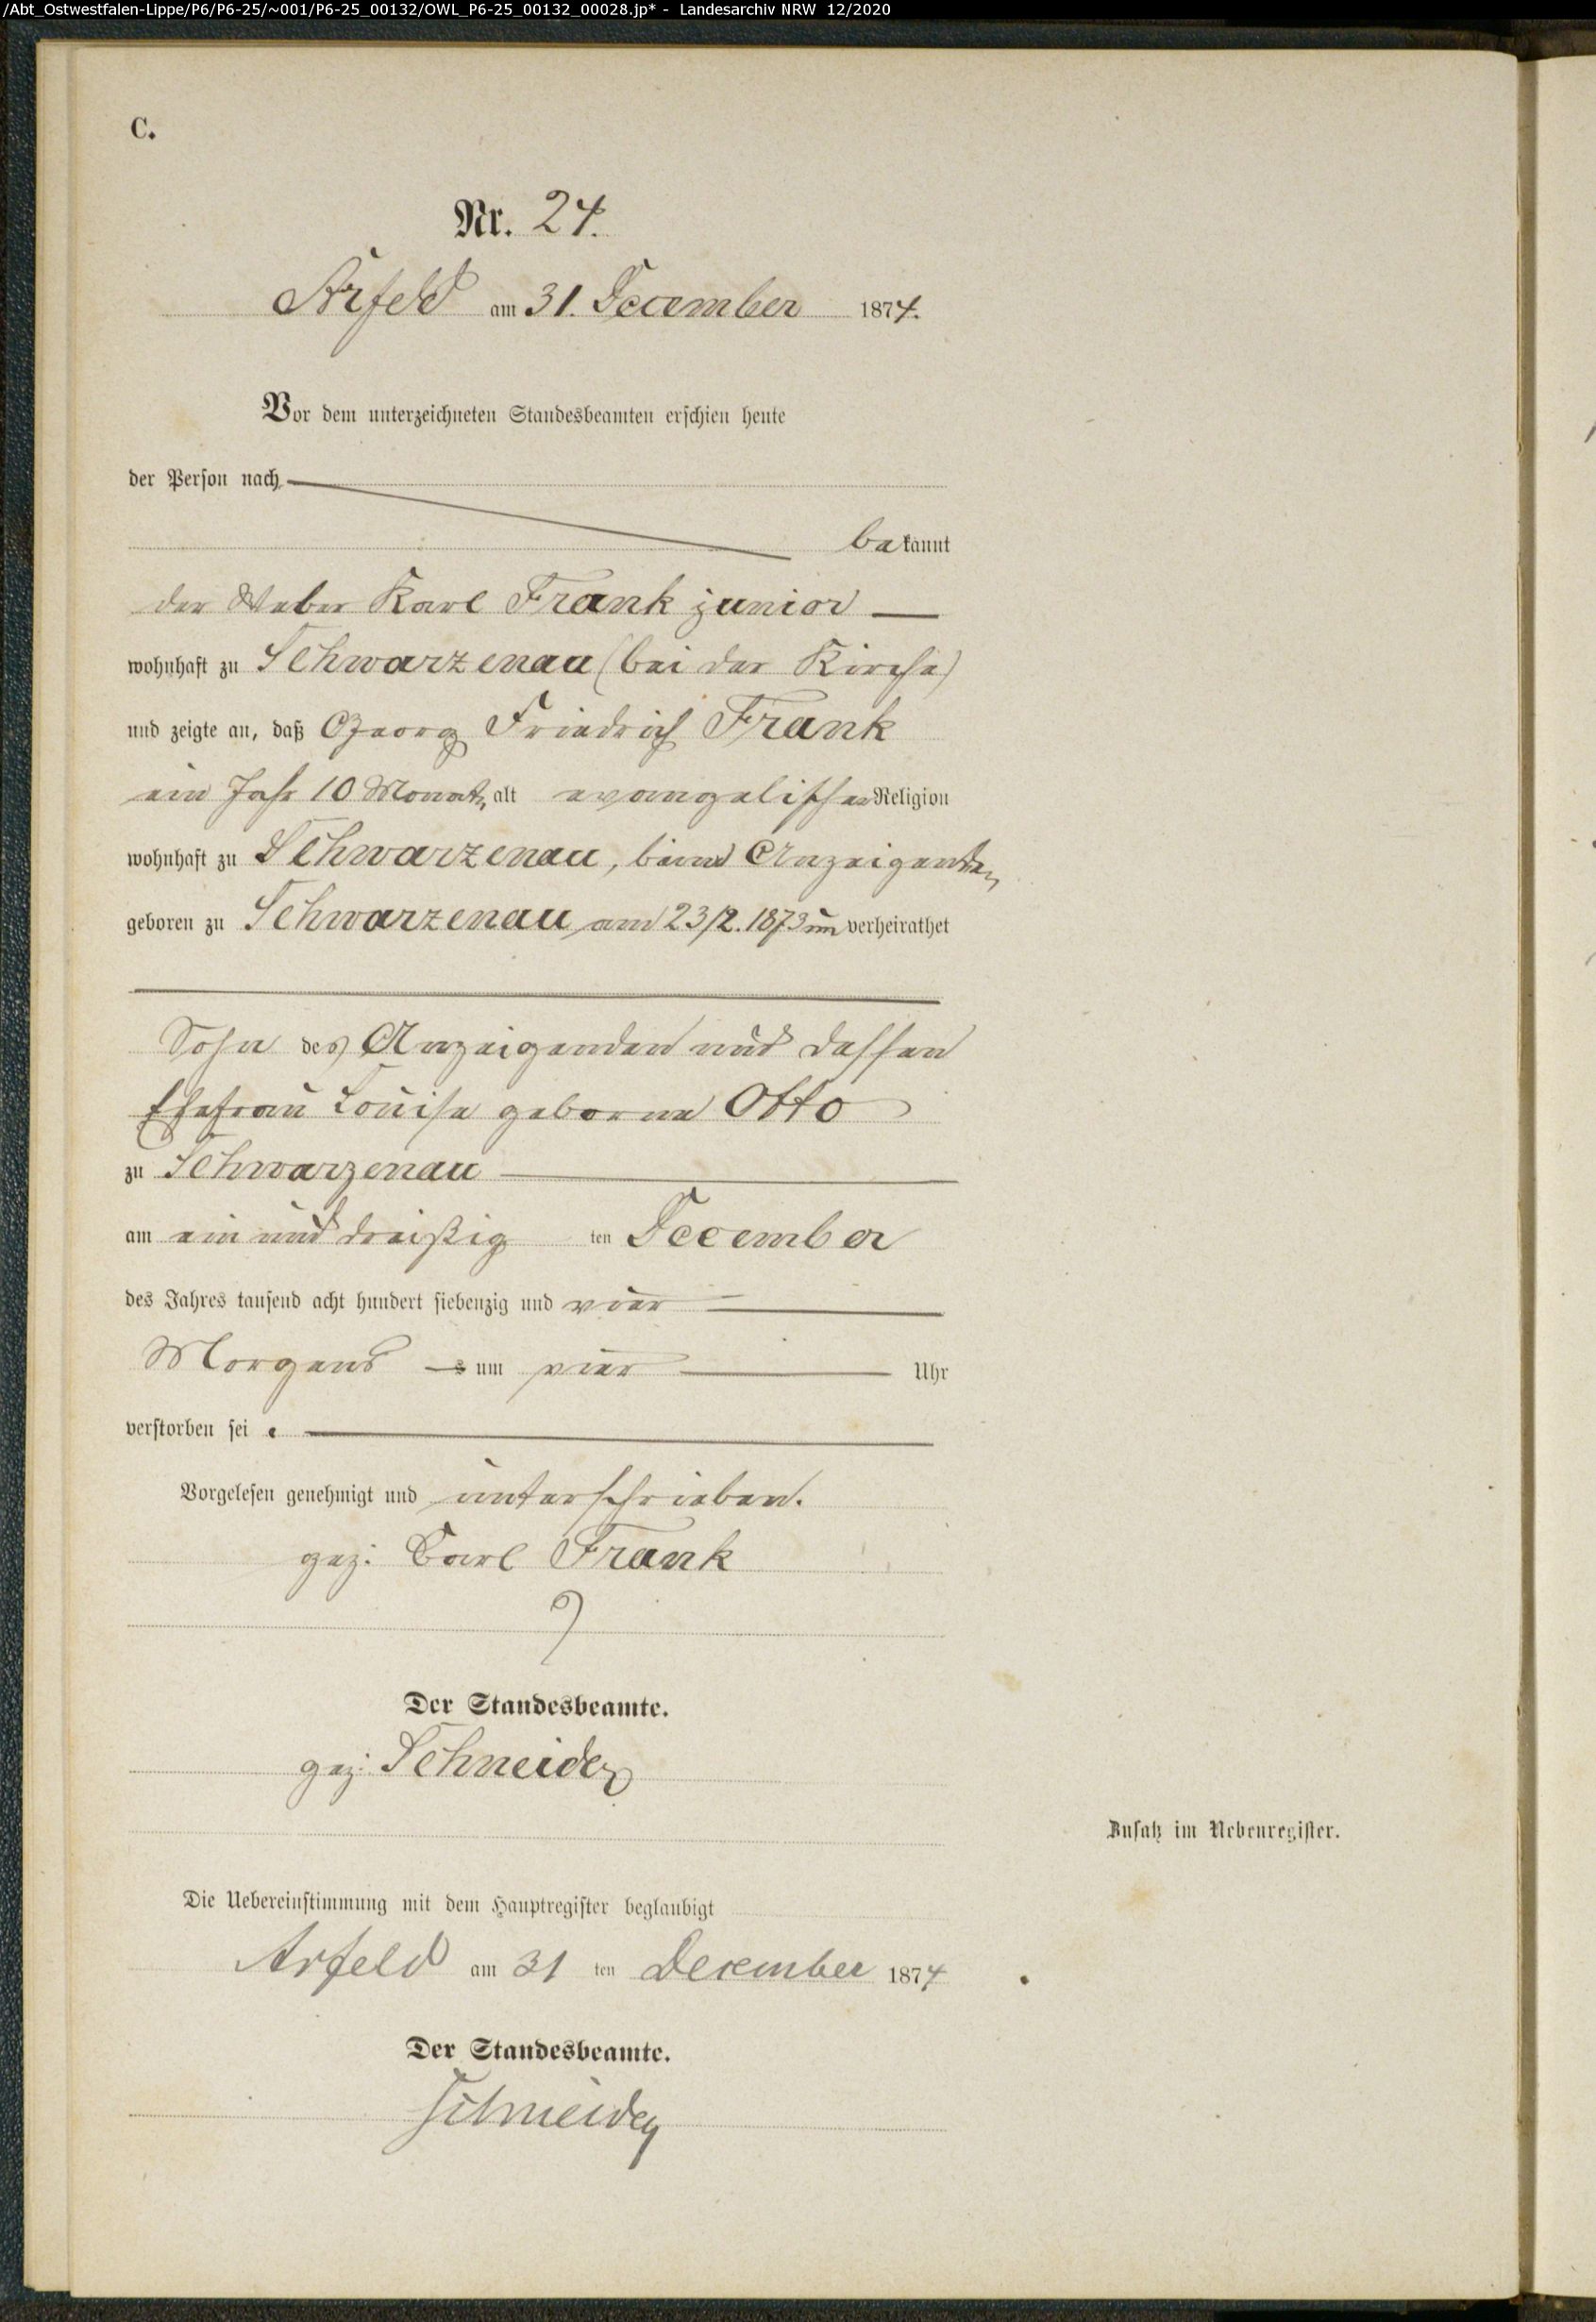 /Abt_Ostwestfalen-Lippe/P6/P6-25/~001/P6-25_00132/OWL_P6-25_00132_00028.jp* - Landesarchiv NRW 12/2020
C.
Nr. 24.
Arfeld am 31. December 1874.
Vor dem unterzeichneten Standesbeamten erschien heute
der Person nach
bekannt
der Weber Karl Frank junior
wohnhaft zu Schwarzenau (bei der Kirche)
und zeigte an, daß Georg Friedrich Frank
ein Jahr 10 Monate, alt evangelischer Religion
wohnhaft zu Schwarzenau, beim Anzeigenden
geboren zu Schwarzenau am 23/2. 1873 un verheirathet
Sohn des Anzeigenden und dessen
Ehefrau Louise geborne Otto
zu Schwarzenau
am ein und dreißig ten December
des Jahres tausend acht hundert siebenzig und vier
Morgens um vier Uhr
verstorben sei.
Vorgelesen genehmigt und unterschrieben.
gez: Carl Frank
Der Standesbeamte.
gez: Schneider
Zusatz im Nebenregister.
Die Uebereinstimmung mit dem Hauptregister beglaubigt
Arfeld am 31 ten December 1874
Der Standesbeamte.
Schneider